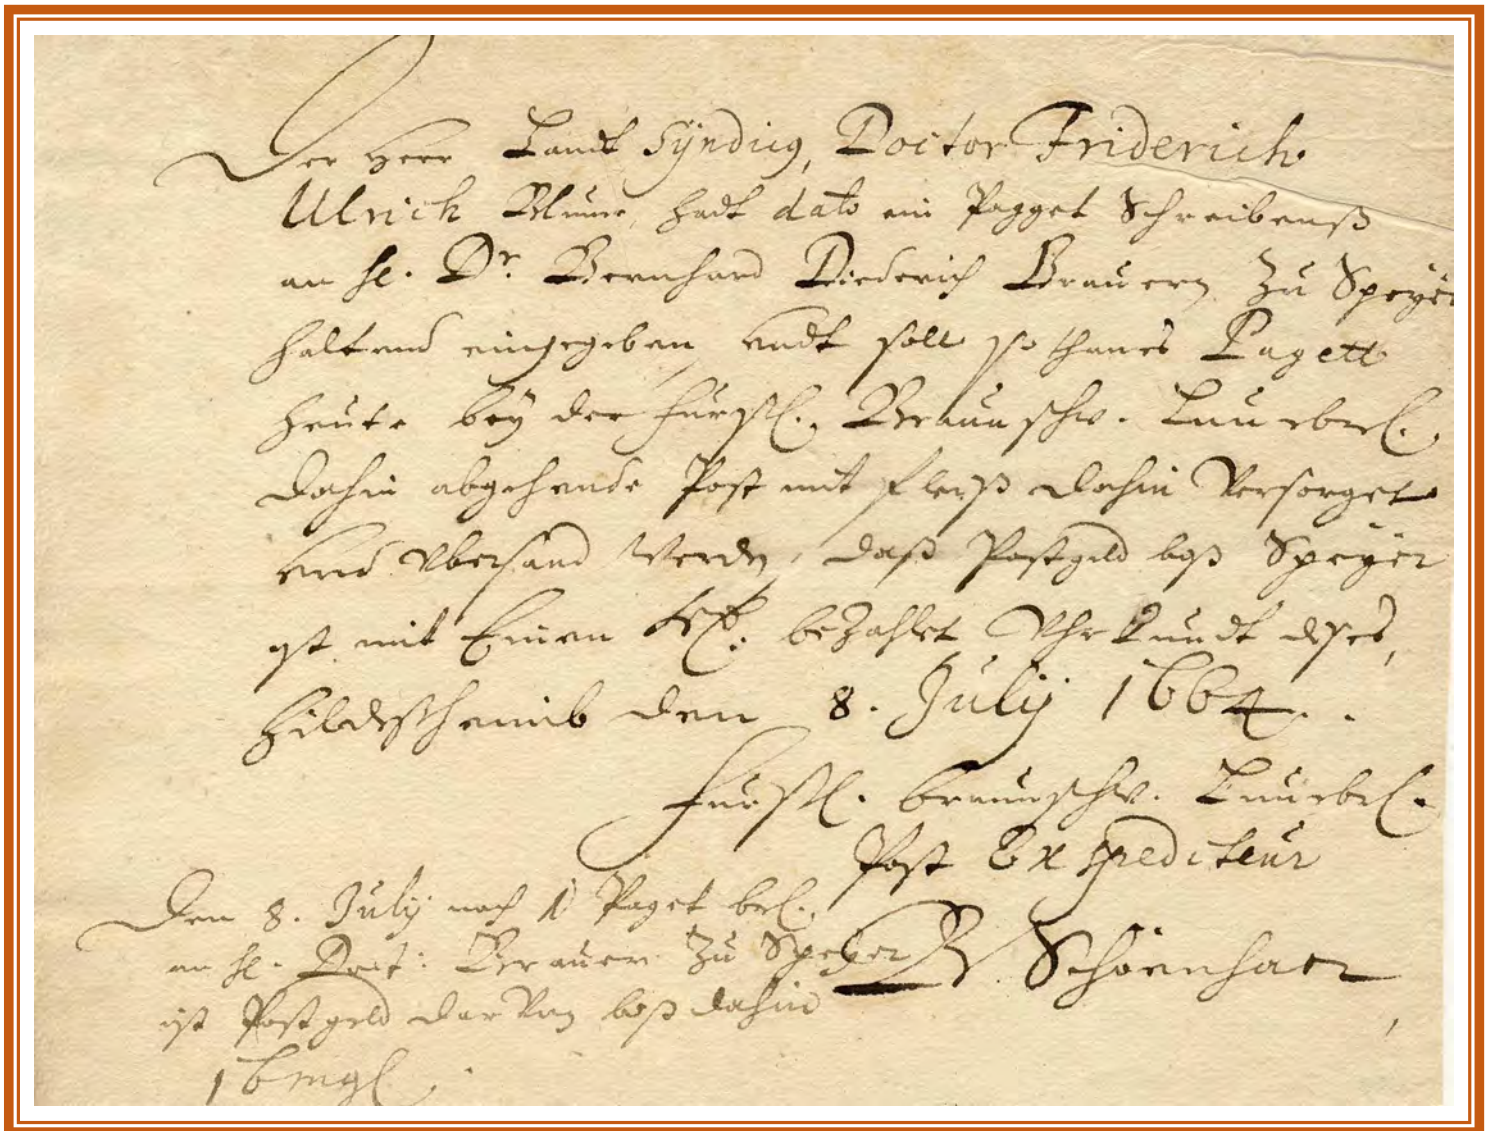 Der Herr Landt Syndicus, Doctor Friderich
Ulrich Blume, hadt dato ein Pagget Schreibenß
an H. Dr. Bernhard Diederich Brauern zu Speyer
haltend eingegeben, undt soll so thanes Pagett
heute bey der Fürstl. Braunschw. Lüneb.
dahin abgehende Post mit fleyß dahin versorget
und vbersand werden, daß Postgeld biß Speyer
yst mit Einen bezahlet, Vhrkundt dyses,
Hildescheimb den 8. July 1664.
Fürstl. Braunschw. Lüneb.
Post Expediteur
B. Schöenhaer
Den 8. July noch 1 Paget
an H. Doct: Brauer zu Speyer
ist Postgeld dar Von biß dahin
16 mgl.